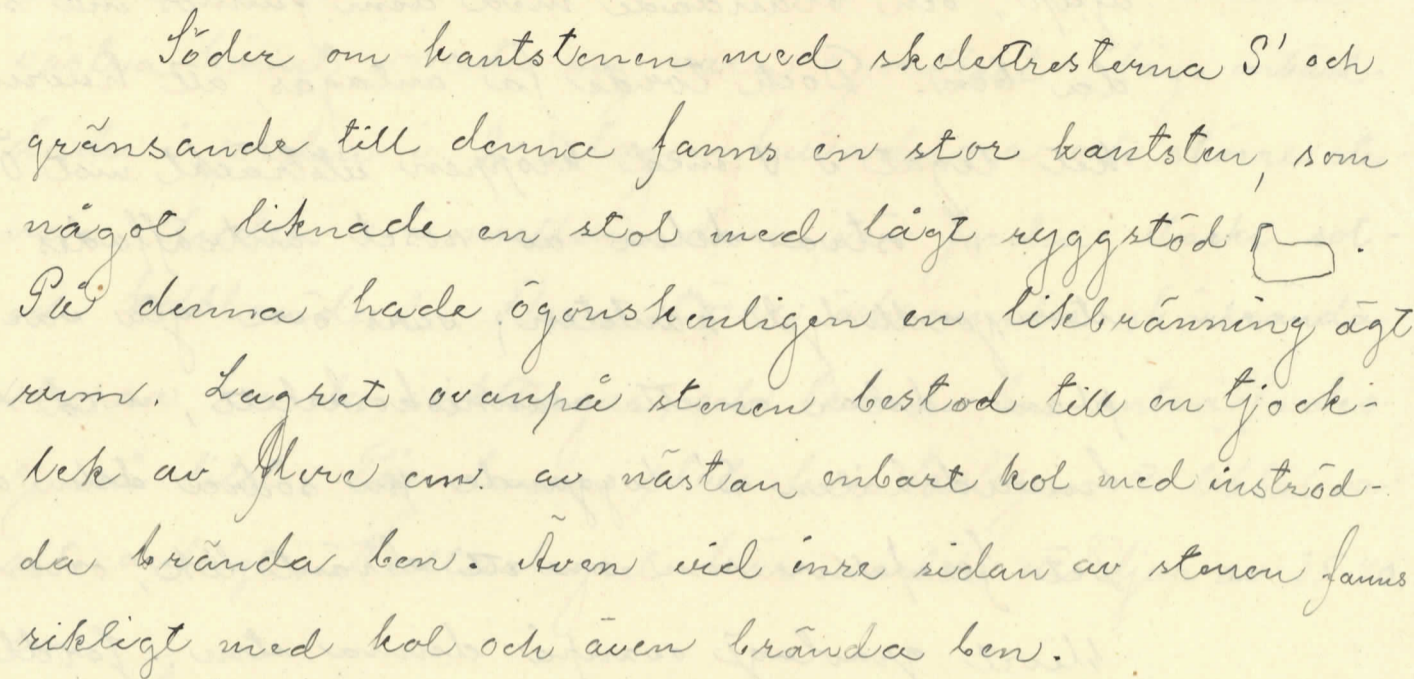 Söder om kantstenen med skelettresterna S' och
gränsande till denna fanns en stor kantsten, som
något liknade en stol med lågt ryggstöd .
På denna hade ögonskenligen en likbränning ägt
rum. Lagret ovanpå stenen bestod till en tjock-
lek av flere cm. av nästan enbart kol med inströd-
da brända ben. Även vid inre sidan av stenen fanns
rikligt med kol och även brända ben.